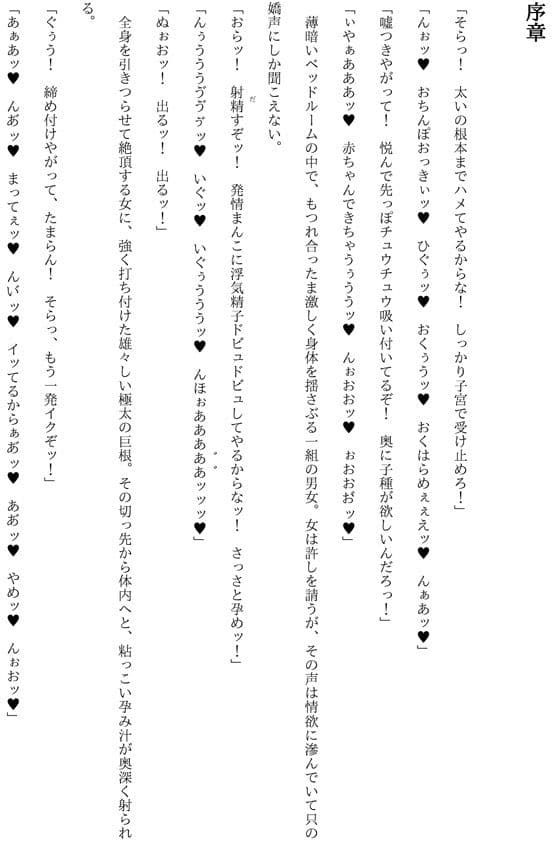 序章
「そらっ！　太いの根本までハメてやるからな！　しっかり子宮で受け止めろ！」
「んぉッ♥　おちんぽおっきぃッ♥　ひぐぅッ♥　おくぅうッ♥　おくはらめぇぇえッ♥　んぁあッ♥」
「嘘つきやがって！　悦んで先っぽチュウチュウ吸い付いてるぞ！　奥に子種が欲しいんだろっ！」
「ぃやぁあああッ♥　赤ちゃんできちゃうぅううッ♥　んぉおおッ♥　ぉおおお゛ッ♥」
薄暗いベッドルームの中で、もつれ合ったまま激しく身体を揺さぶる一組の男女。女は許しを請うが、その声は情欲に滲んでいて只の
嬌声にしか聞こえない。
「おらッ！　射精すぞッ！　発情まんこに浮気精子ドビュドビュしてやるからなッ！　さっさと孕めッ！」
「んぅうううゔゔゥッ♥　いぐッ♥　いぐぅうううッ♥　んほぉああああ゛あ゛ッッッ♥」
「ぬぉおッ！　出るッ！　出るッ！」
全身を引きつらせて絶頂する女に、強く打ち付けた雄々しい極太の巨根。その切っ先から体内へと、粘っこい孕み汁が奥深く射られ
る。
「ぐぅう！　締め付けやがって、たまらん！　そらっ、もう一発イクぞッ！」
「あぁあッ♥　んあ゛ッ♥　まってぇッ♥　んい゛ッ♥　イッてるからぁあ゛ッ♥　ああ゛ッ♥　やめッ♥　んぉおッ♥」